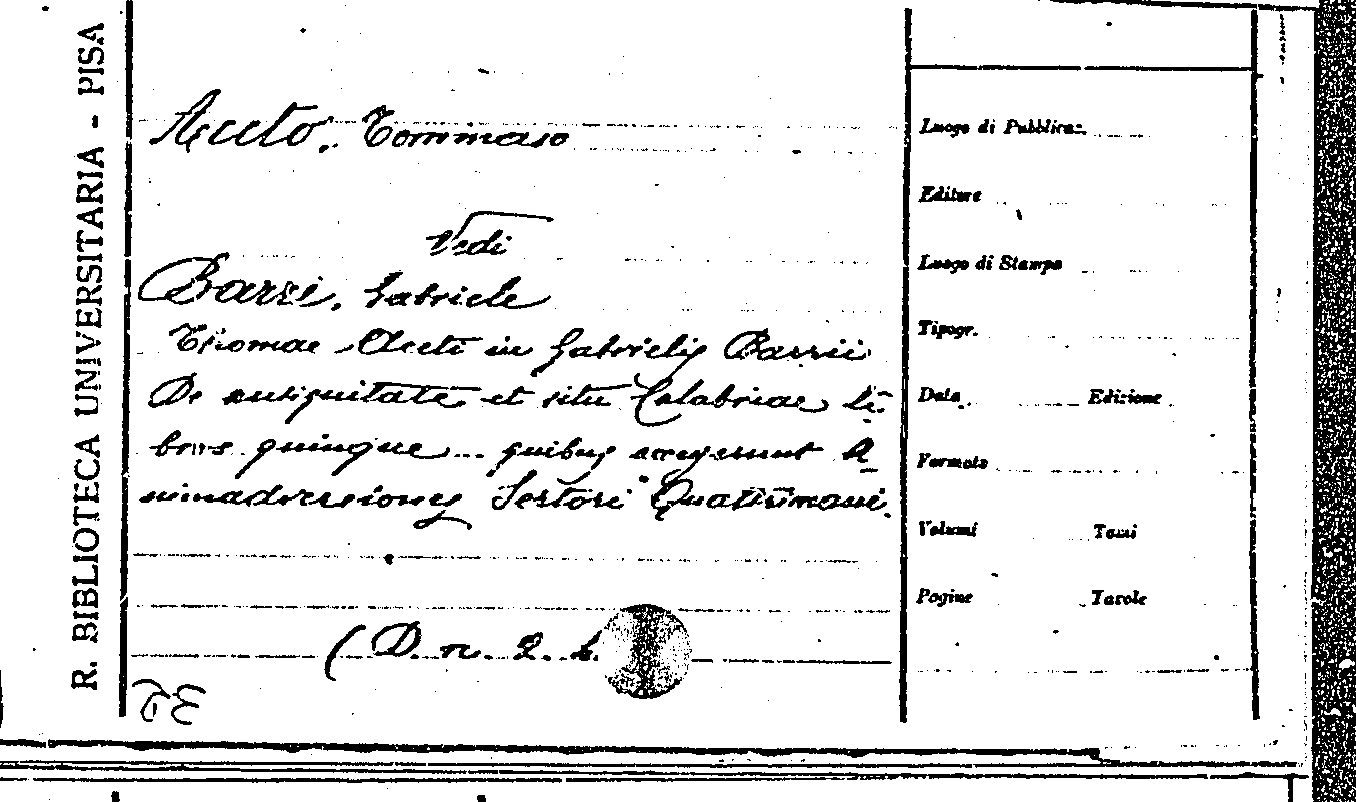 R. BIBLIOTECA UNIVERSITARIA - PISA
Aceto, Tommaso
Vedi
Barri, Gabriele
Thomae Aceti in Gabrielis Barrii
De antiquitate et situ Calabriae li-
bros quinque... quibus accesserunt A-
nimadversiones Sertori Quattrimani.
( D. n. 2. 
Luogo di Pubblicaz.
Editore
Luogo di Stampa
Tipogr.
Data Edizione
Formato
Volumi Tomi
Pagine Tavole